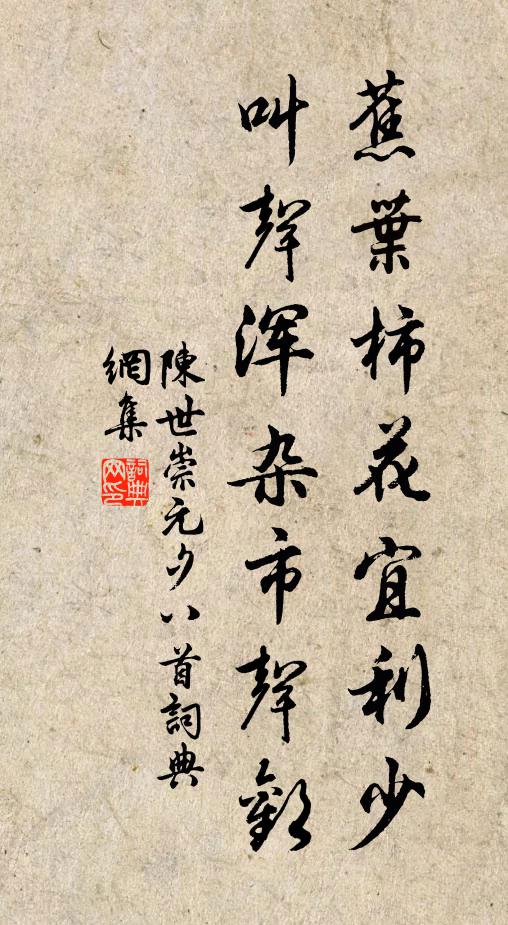 蕉葉柿花宜利少
叫聲渾杂市聲歡
陳世崇元夕八首詞典
網集
詞典网印